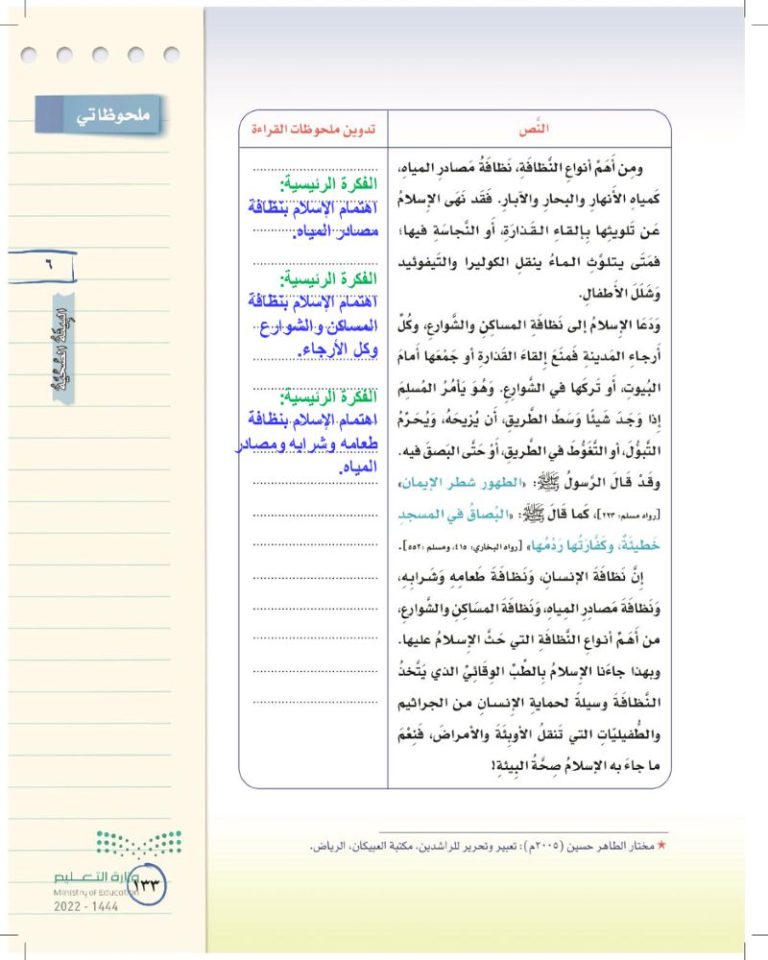 ملحوظاتي
النَّص
تدوين ملحوظات القراءة
ومِن أَهَمِّ أنواعِ النَّظافَةِ، نَظافَةُ مصادرِ المياهِ،
كَمياهِ الأنهارِ والبحارِ والآبارِ. فَقَد نَهَى الإسلامُ
عَن تلويثِها بِإلقاءِ القَذارَةِ، أو النَّجاسَةِ فيها؛
فمَتَى يتلوَّثِ الماءُ ينقلِ الكوليرا والتِّيفوئيد
وشَلَلَ الأطفالِ.
وَدَعَا الإسلامُ إلى نَظافَةِ المساكِنِ والشَّوارعِ، وكُلِّ
أرجاءِ المَدينةِ فمنَعَ إلقاءَ القَذارةِ أو جَمْعَها أمامَ
البُيوتِ، أو تَركَها في الشَّوارعِ. وَهُوَ يَأمُرُ المُسلِمَ
إذا وَجَدَ شَيئًا وَسَطَ الطَّريقِ، أَن يُزيحَهُ، وَيُحَرِّمُ
التَّبوُّلَ، أو التَّغَوُّطَ في الطَّريقِ، أوْ حَتَّى البَصقَ فيه.
وقَدْ قَالَ الرَّسولُ ﷺ: «الطهور شطر الإيمان»
[رواه مسلم: ٢٢٣]، كَما قَالَ ﷺ: «البُصاقُ في المسجدِ
خَطيئةٌ، وكَفَّارَتُها رَدْمُها» [رواه البخاري: ٤١٥، ومسلم: ٥٥٢].
إنَّ نَظافَةَ الإنسانِ، وَنَظافَةَ طَعامِهِ وَشَرابِهِ،
وَنَظافَةَ مَصادرِ المِياهِ، وَنَظافَةَ المسَاكِنِ والشَّوارعِ،
من أَهَمِّ أنواعِ النَّظافَةِ التي حَثَّ الإسلامُ عليها.
وبهذا جاءَنا الإسلامُ بِالطِّبِّ الوِقائيِّ الذي يَتَّخذُ
النَّظافَةَ وسيلةً لحمايةِ الإنسانِ من الجراثيمِ
والطُّفيليَّاتِ التي تَنقلُ الأوبِئَةَ والأمراضَ، فَنِعْمَ
ما جاءَ به الإسلامُ صِحَّةُ البيئةِ!
الفكرة الرئيسية:
اهتمام الإسلام بنظافة
مصادر المياه.
الفكرة الرئيسية:
اهتمام الإسلام بنظافة
المساكن والشوارع
وكل الأرجاء.
الفكرة الرئيسية:
اهتمام الإسلام بنظافة
طعامه وشرابه ومصادر
المياه.
٦
★ مختار الطاهر حسين (٢٠٠٥م): تعبير وتحرير للراشدين، مكتبة العبيكان، الرياض.
وزارة التعليم
Ministry of Education
2022 - 1444
١٣٣